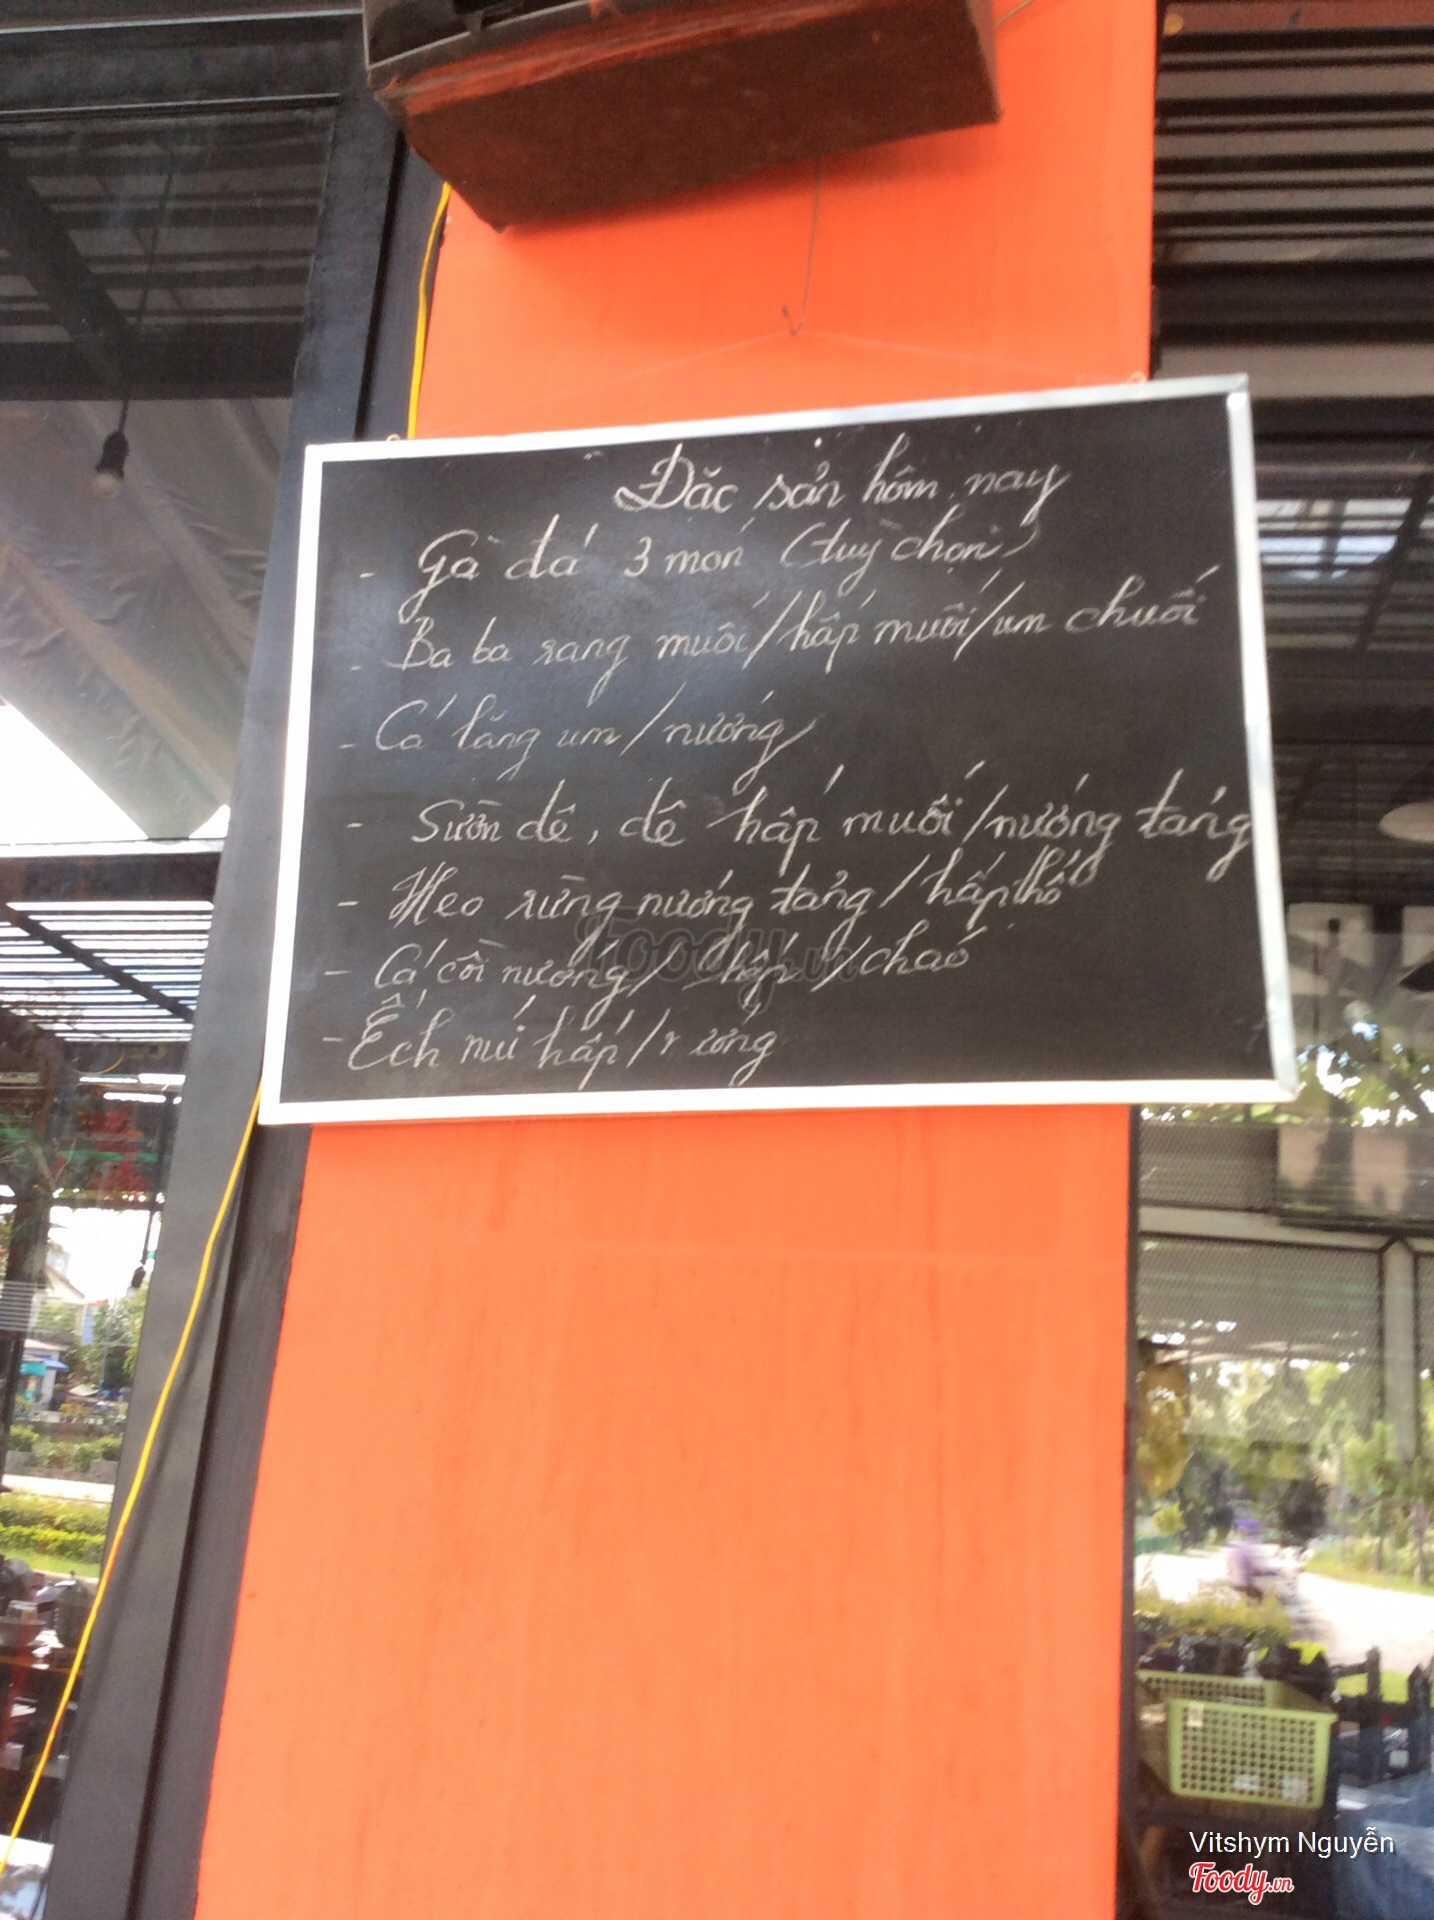 Đăc sản hôm nay
- Gà đá 3 món (tuỳ chọn)
- Ba ba rang muối/hấp muối/um chuối
- Cá lăng um/nướng
- Sườn dê, dê hấp muối/nướng tảng
- Heo rừng nướng tảng/hấp thố
- Cá cồi nướng/hấp/chao
- Ếch núi hấp/nướng
Foody.vn
Vitshym Nguyễn
Foody.vn